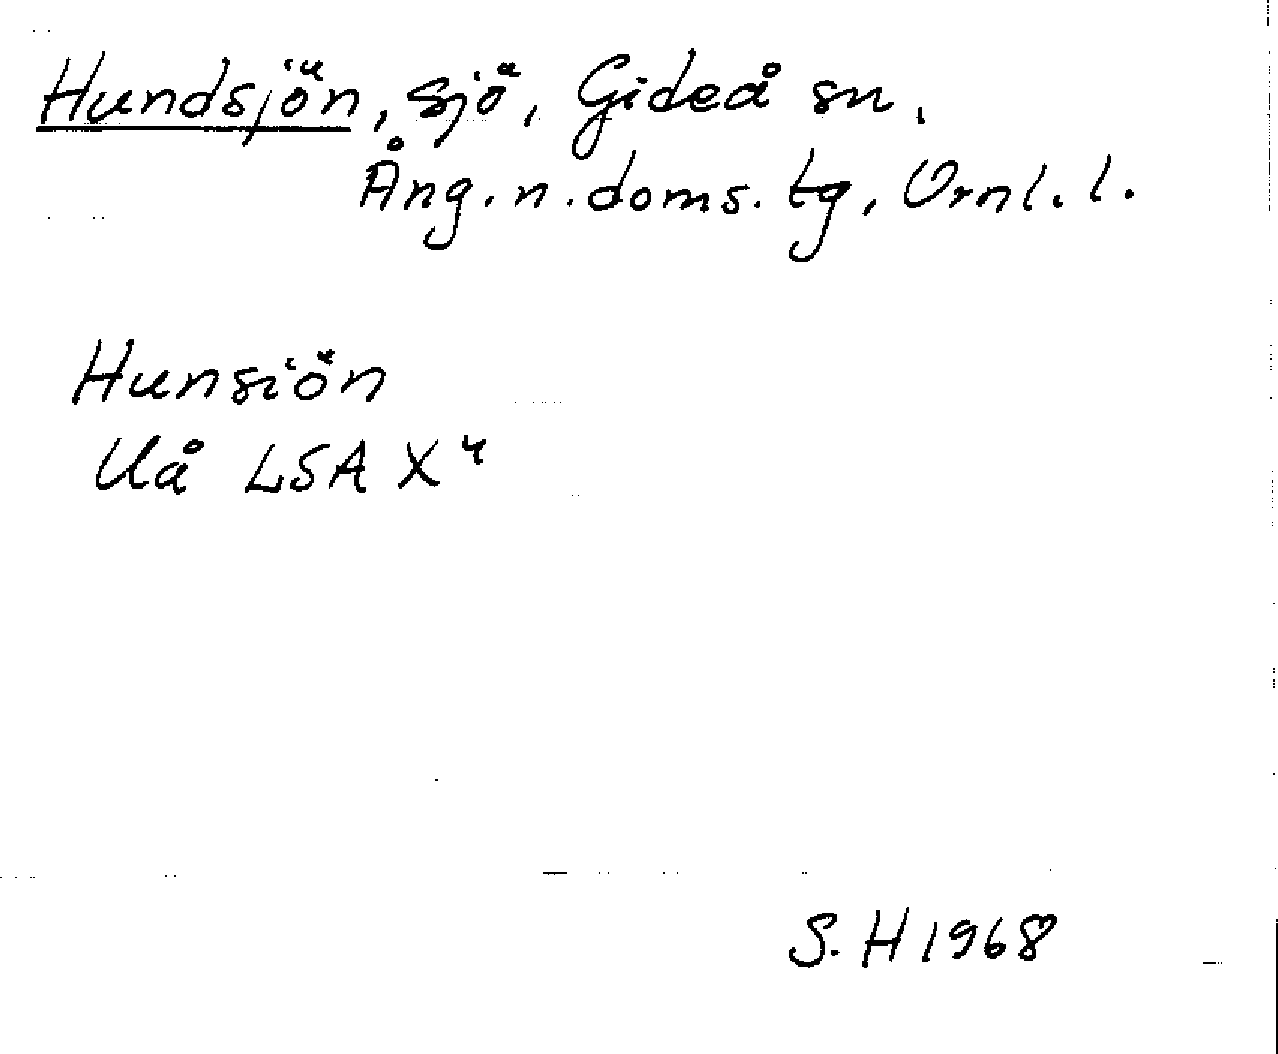 Hundsjön, sjö, Gideå sn,
Ång. n. doms. tg, Vrnl. l.
Hunsiön
Uå LSA X 4
S. H 1968